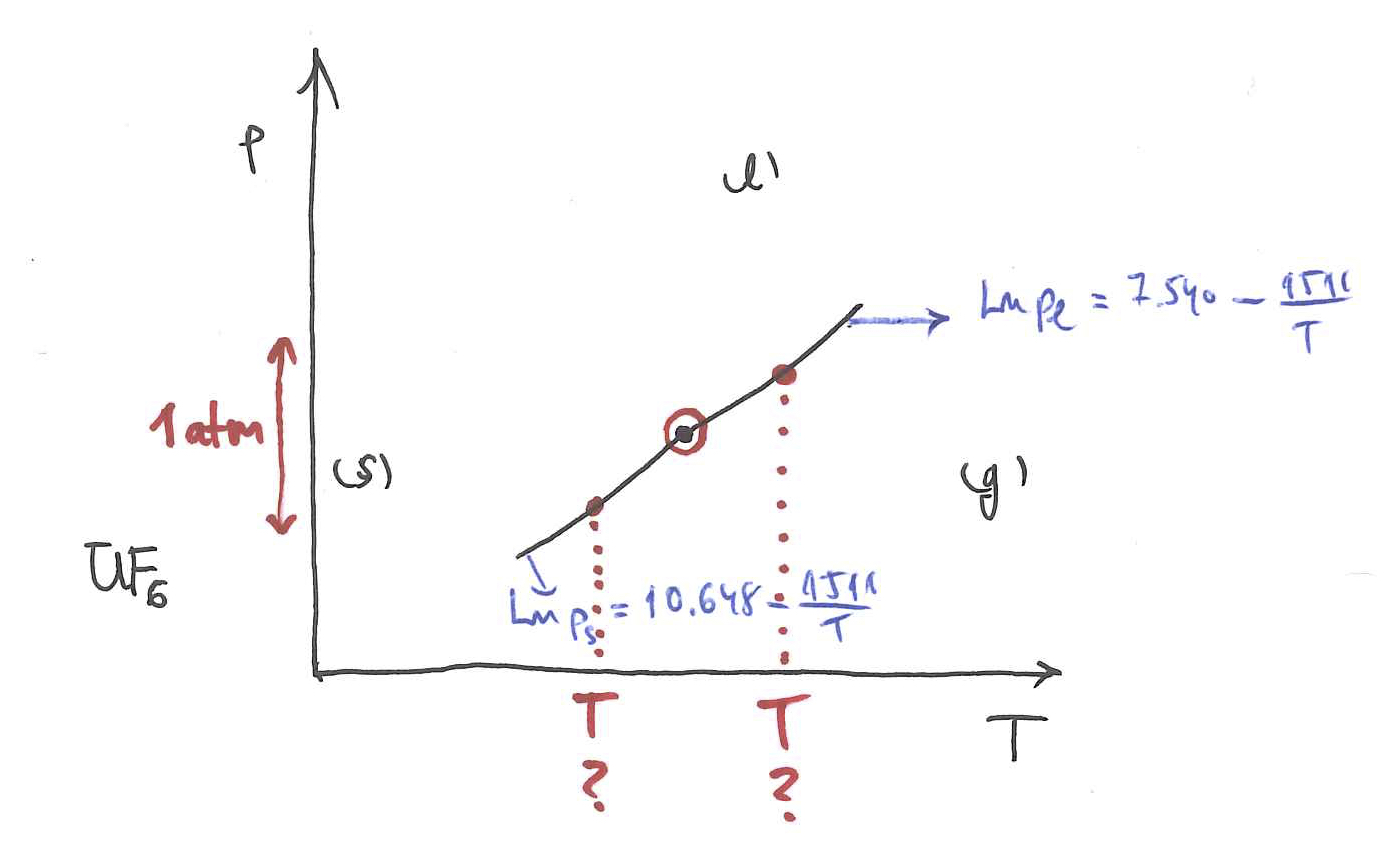 P
(l)
Ln Pl = 7.540 - 1511/T
1 atm
(s)
(g)
UF6
Ln Ps = 10.648 - 1511/T
T
?
T
?
T